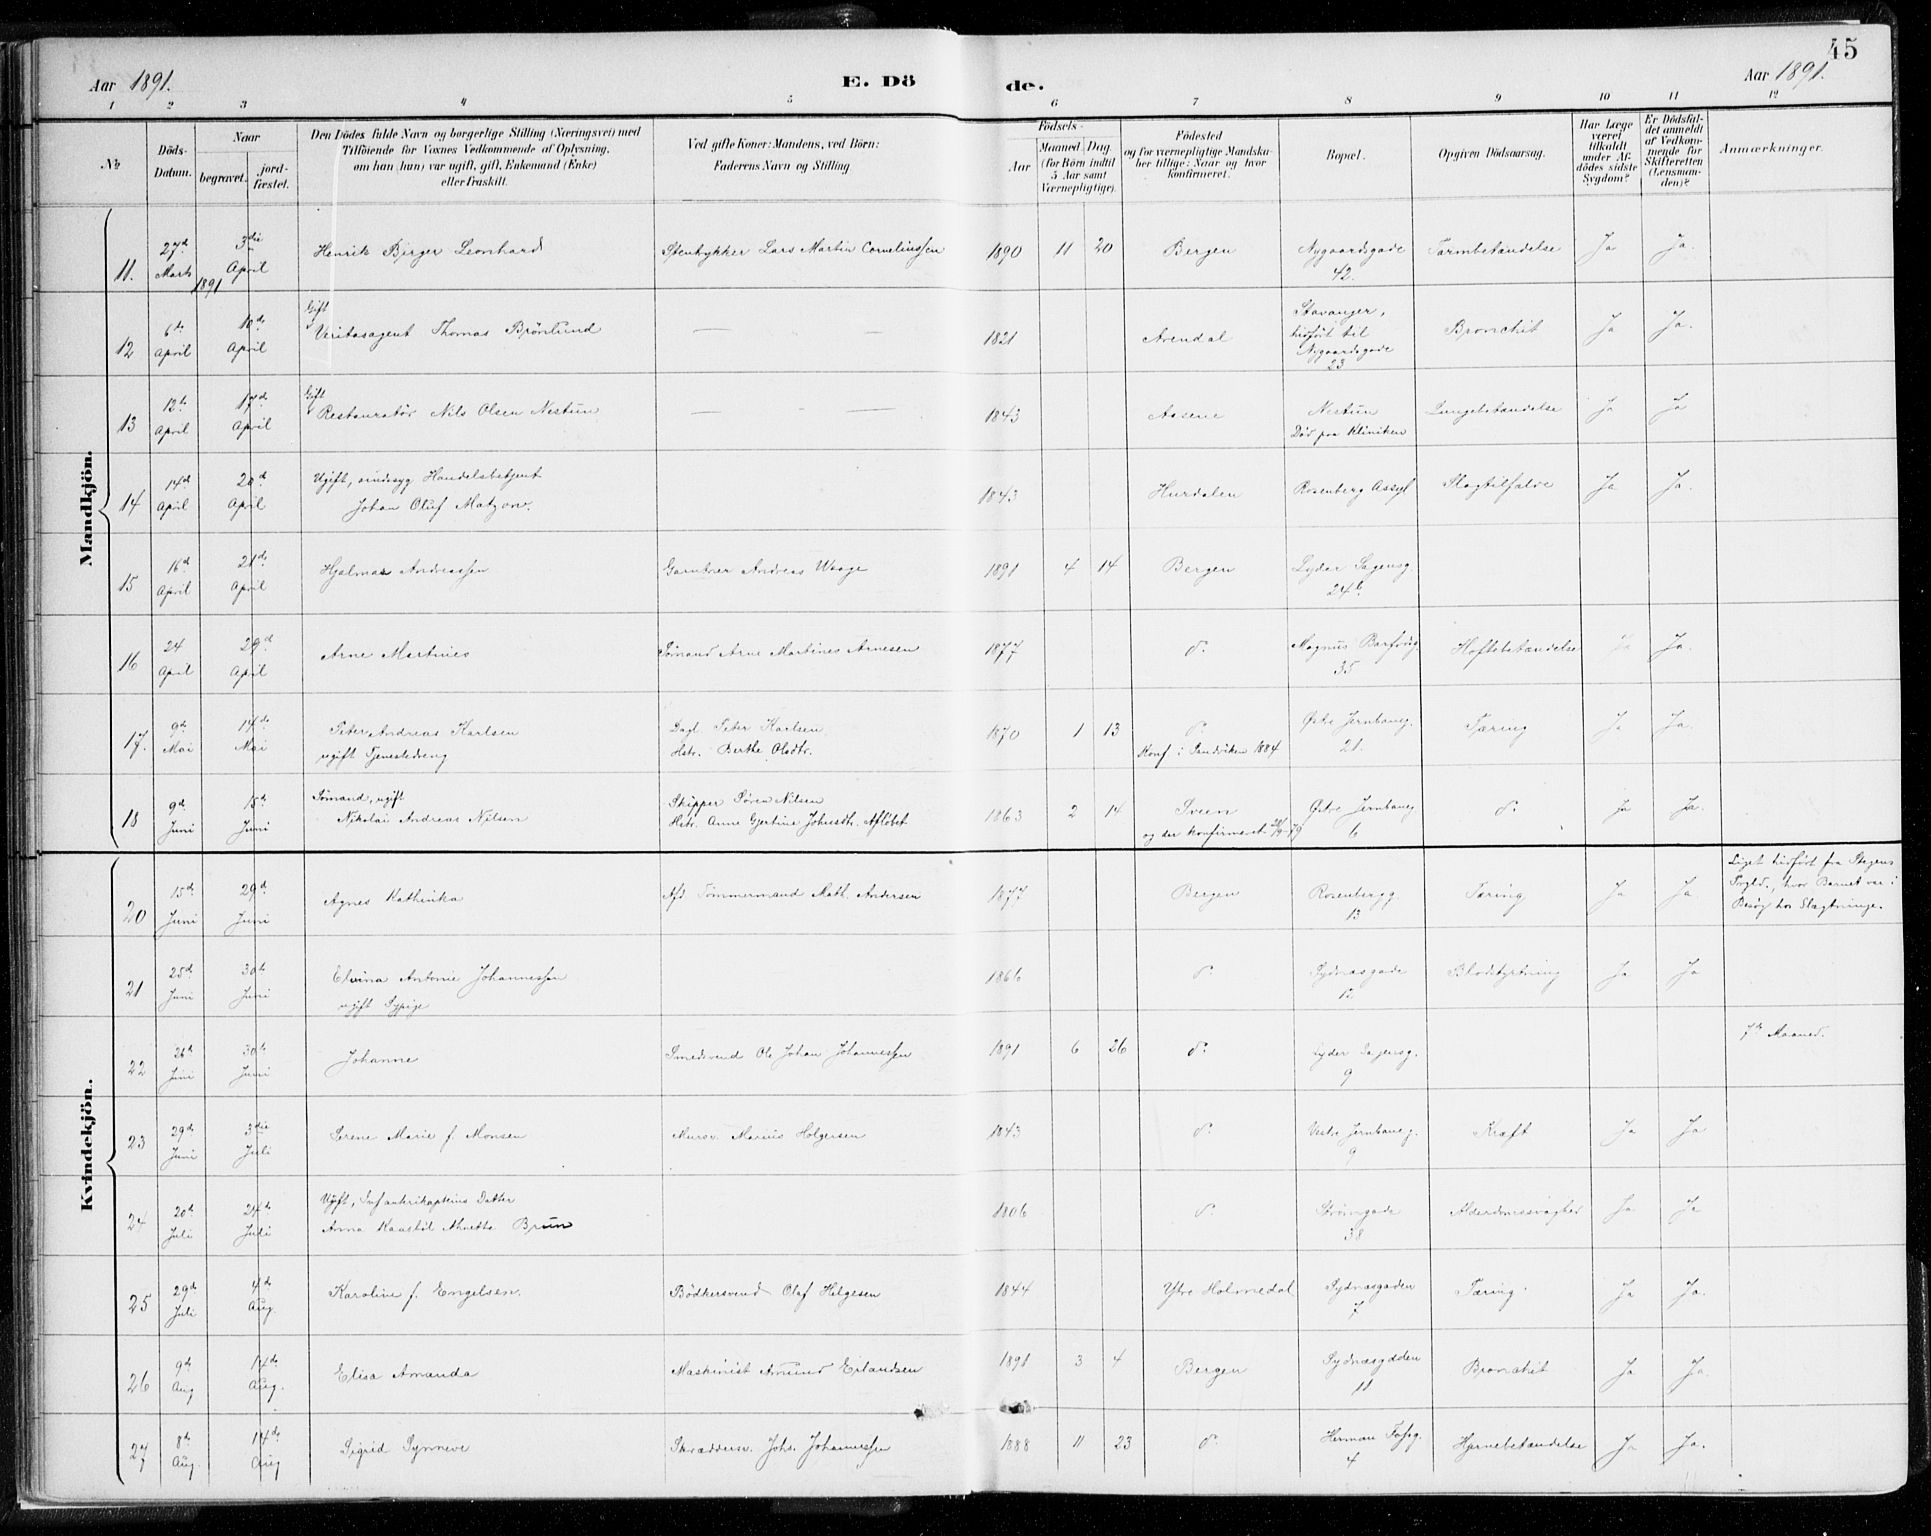 45
Aar 1891.
E. Dö
de.
Aar 1891.
1 2 3 4 5 6 7 8 9 10 11 12
No
Döds-
Datum.
Naar
begravet. jord-
fæstet.
Den Dödes fulde Navn og borgerlige Stilling (Næringsvei) med
Tilföiende for Voxnes Vedkommende af Oplysning,
om han (hun) var ugift, gift, Enkemand (Enke)
eller fraskilt.
Ved gifte Koner: Mandens, ved Börn:
Faderens Navn og Stilling.
Födsels-
Aar
Maaned. Dag.
(for Börn indtil
5 Aar samt
Værnepligtige).
Födested
og for værnepligtige Mandska-
ber tillige: Naar og hvor
konfirmeret.
Bopæl.
Opgiven Dödsaarsag.
Har Læge
været
tilkaldt
under Af-
dödes sidste
Sygdom?
Er Dödsfal-
det anmeldt
af Vedkom-
mende for
Skifteretten
(Lensman-
den)?
Anmærkninger.
Mandkjön.
11. 27d Marts 1891 3die April Henrik Birger Leonhard Stenhykker Lars Martin Corneliussen 1890 11 20 Bergen Nygaardsgade 42. Tarmbetændelse Ja Ja.
12 6te April 10de April Gift Veritasagent Thomas Brönlund — — 1821 Arendal Stavanger, hidført til Nygaardsgade 23 Bronchit Ja Ja.
13 12te April 17de April Gift Restauratör Nils Olsen Nestun — — — 1843 Aasene Nestun Död paa Kliniken Lungebetændelse Ja Ja
14 14d April 20d April Ugift, sindssyg Handelsbetjent
Johan Oluf Matzon. 1843 Hurdalen Rosenberg Assyl Slagtilfælde Ja Ja.
15 16d April 21de April Hjalmar Andreassen Gartner Andreas Waage 1891 4 14 Bergen Lyder Sagensg. 24b
16 24 April 29d April Arne Martines Sömand Arne Martines Arnesen 1877 do Magnus Barfodsg 35 Hoftebetændelse Ja Ja.
17. 9d Mai 14de Mai Peter Andreas Karlsen
ugift Tjenestedreng Dagl. Peter Karlsen
Hstr. Berthe Olsdtr. 1870 1 13 do
Konf. i Sandviken 1884 Østre Jernbaneg. 21. Tæring Ja Ja.
18 9d Juni 15de Juni Sömand, ugift
Nikolai Andreas Nilsen Skipper Sören Nilsen
Hstr. Anne Gjertine Johnsdtr. Aflöbet 1863 2 14 Sveen
og der konfirmeret 28/9-79 Østre Jernbaneg 6 do Ja Ja.
Kvindekjön.
20 15d Juni 29d Juni Agnes Kathinka Afd Tömmermand Math. Andersen 1877 Bergen Rosenbergg. 13 Tæring Ja Ja. Liget hidfört fra Skogens
Prgld., hvor Barnet var i
Besög hos Slægtninge.
21 25d Juni 30te Juni Elvina Antonie Johannessen
ugift Sypige 1866 do Sydnæsgade 12 Blodstyrtning Ja Ja
22 26d Juni 30te Juni Johanne Smedsvend Ole Johan Johannessen 1891 6 26 do Lyder Sagensg. 9 7de Maaned.
23 29d Juni 3die Juli Serene Marie f. Monsen Mursv. Marius Holgersen 1843 do Vestre Jernbaneg. 9 Kræft Ja Ja
24 20d Juli 24de Juli Ugift, Infanterikapteins Datter
Anna Kaastöl Ahnette Brun 1806 do Strömgade 38 Alderdomssvaghed Ja Ja
25 29d Juli 4de Aug. Karoline f. Engelsen. Bödkersvend Olaf Helgesen 1844 Ytre Holmedal Sydnæsgaden 7 Tæring Ja Ja.
26 9d Aug 14de Aug. Elisa Amanda Maskinist Amund Erlandsen 1891 3 4 Bergen Sydnæsgaden 11 Bronchit Ja Ja.
27 8d Aug. 14de Aug Sigrid Synneve Skræddersv. Johs. Johannessen 1888 11 23 do Herman Fossg. 4 Hjernebetændelse Ja Ja.